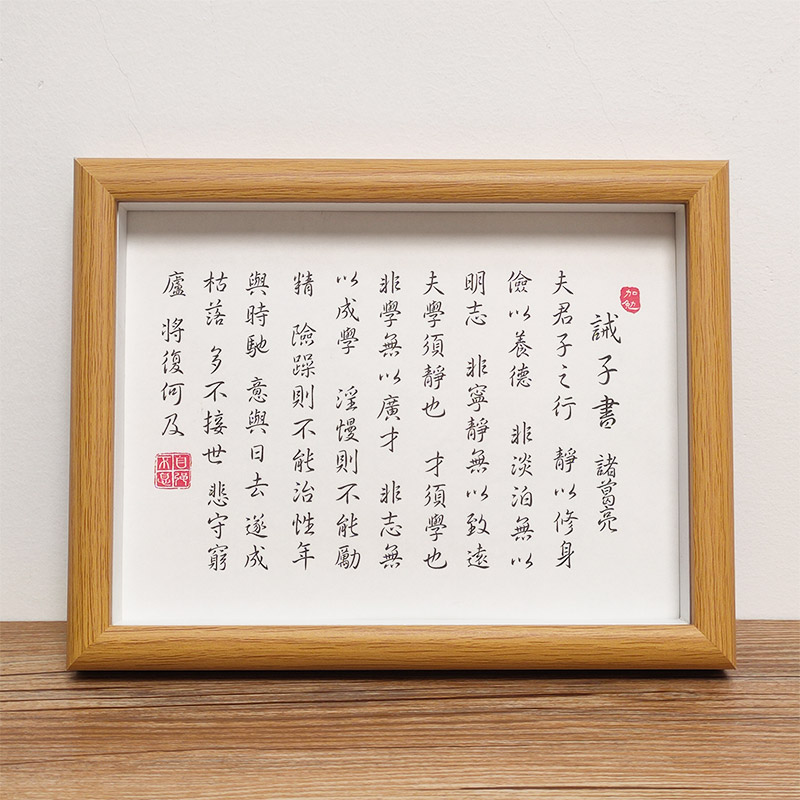 加勉
誡子書 諸葛亮
夫君子之行 靜以修身
儉以養德 非淡泊無以
明志 非寧靜無以致遠
夫學須靜也 才須學也
非學無以廣才 非志無
以成學 淫慢則不能勵
精 險躁則不能治性年
與時馳 意與日去 遂成
枯落 多不接世 悲守窮
廬 將復何及
自強不息